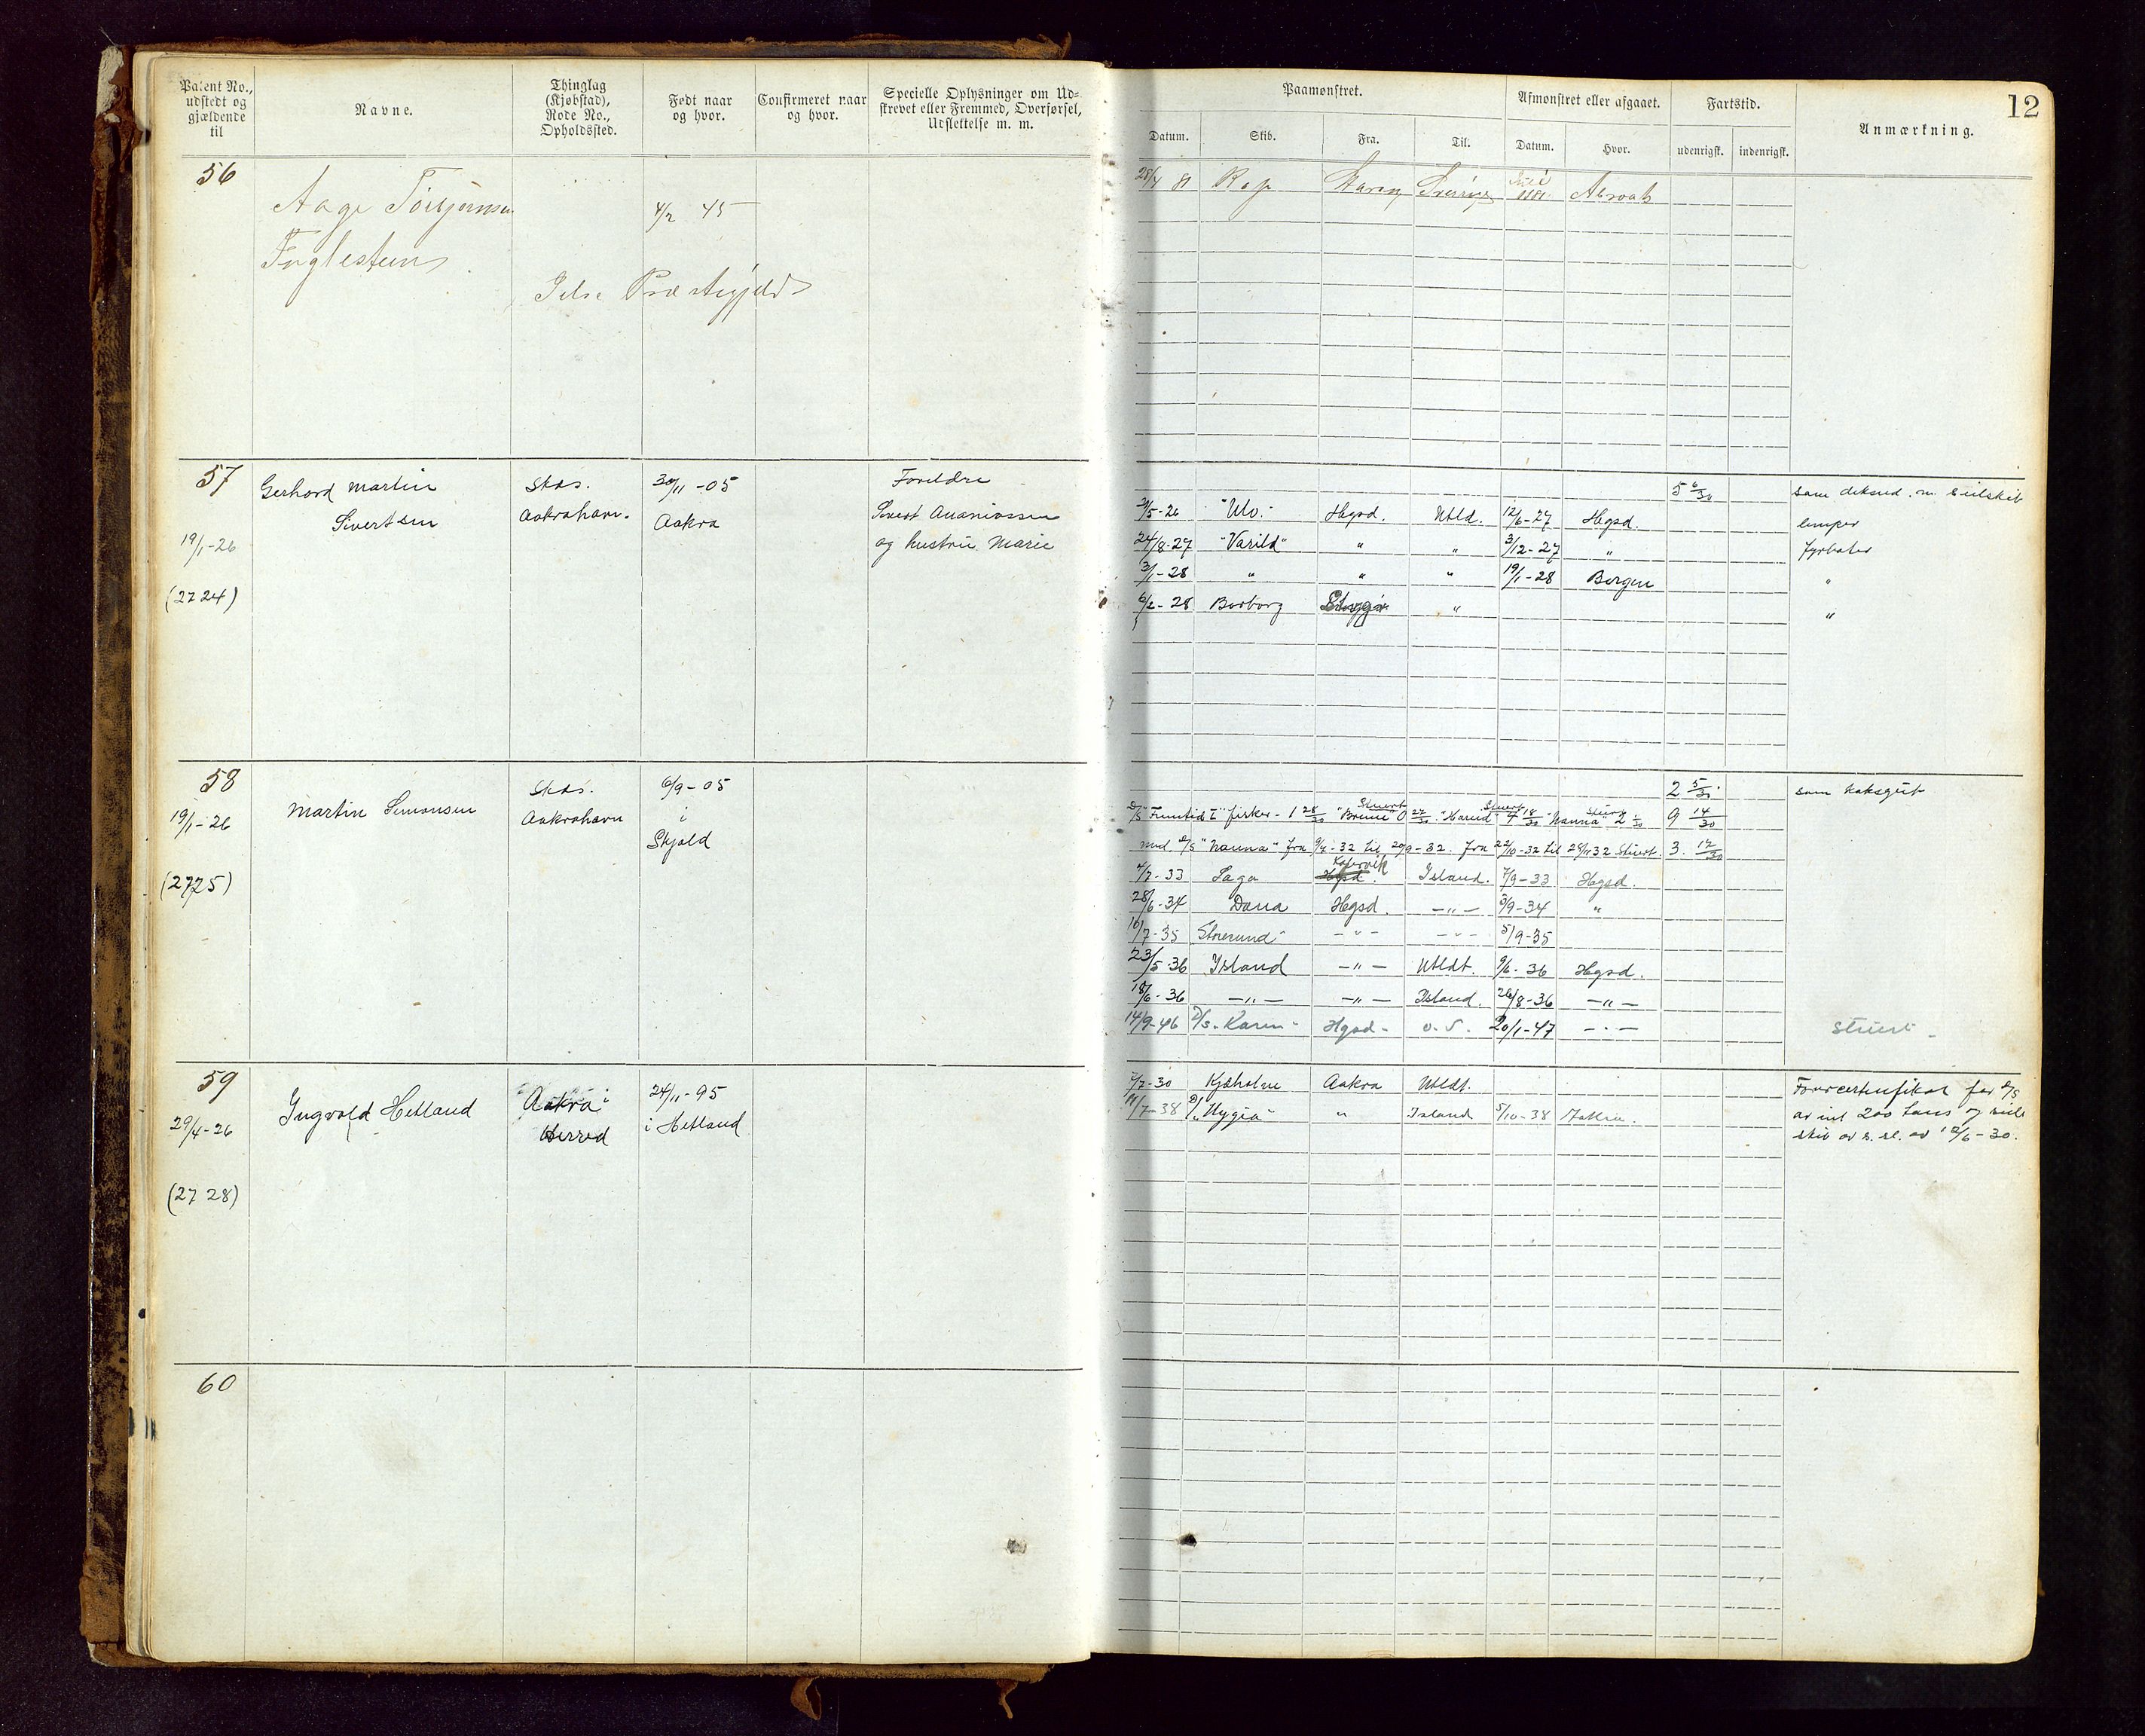 Patent No.,
udstedt og
gjældende
til
Navne.
Thinglag
(Kjøbstad),
Rode No.,
Opholdssted.
Født naar
og hvor.
Confirmeret naar
og hvor.
Specielle Oplysninger om Ud-
skrevet eller Fremmed, Overførsel,
Udslettelse m. m.
56
Aage
4/2 45
Præstegjeld
57
Gerhard Martin
Sivertsen
19/1-26
(2724)
Skds.
Aakrahavn.
30/11-05
Aakra
Foreldre
Sivert Ananiassen
og hustru Marie
58
19/1-26
(2725)
Martin Simonsen
Skds.
Aakrahavn
6/9-05
i
Skjold
59
29/4-26
(2728)
Ingvald Hetland
Aakra i
Herred
24/11-95
i Hetland
60
12
Paamønstret.
Afmønstret eller afgaaet.
Fartstid.
Anmærkning.
Datum.
Skib.
Fra.
Til.
Datum.
Hvor.
udenrigsk.
indenrigsk.
28/4 81
Juli
1881
5 6/30
som deksmd. m. seilskib
"Ulv." Hgsd. Utld. 12/6-27 Hgsd. lemper
24/8-27 "Varild" " " 3/12-27 " fyrbøter
3/1-28 " " " 19/1-28 Bergen "
6/2-28 "
"
2 5/30 som koksgut
9 14/30
D/S "Fremtid I" fisker - 1 28/30 0 27/30 4 18/30 "Nanna" 2 1/30
med D/S "Nanna" fra 9/4-32 til 20/9-32. fra 22/10-32 til 28/11 32 Stuert. 3. 17/30
Kopervik
4/7-33 Saga Hgsd. Island. 7/9-33 Hgsd.
28/6-34 Dana Hgsd. -"- 3/9-34 "
10/7-35 -"- -"- 5/9-35
23/5-36 Island -"- Utldt. 9/6-36 Hgsd.
18/6-36 -"- -"- Island. 26/8-36 -"-
14/9-46 D/S "Karen" Hgsd- 20/1-47 -"- Stuert -
2/7-30 Kjæholm Aakra Utldt.
D/S "Hygia" " Island 5/10-38 Aakra.
Førercertifikat for D/S
av inl 200 tons og seil-
skib av s. st. av 12/6-30.